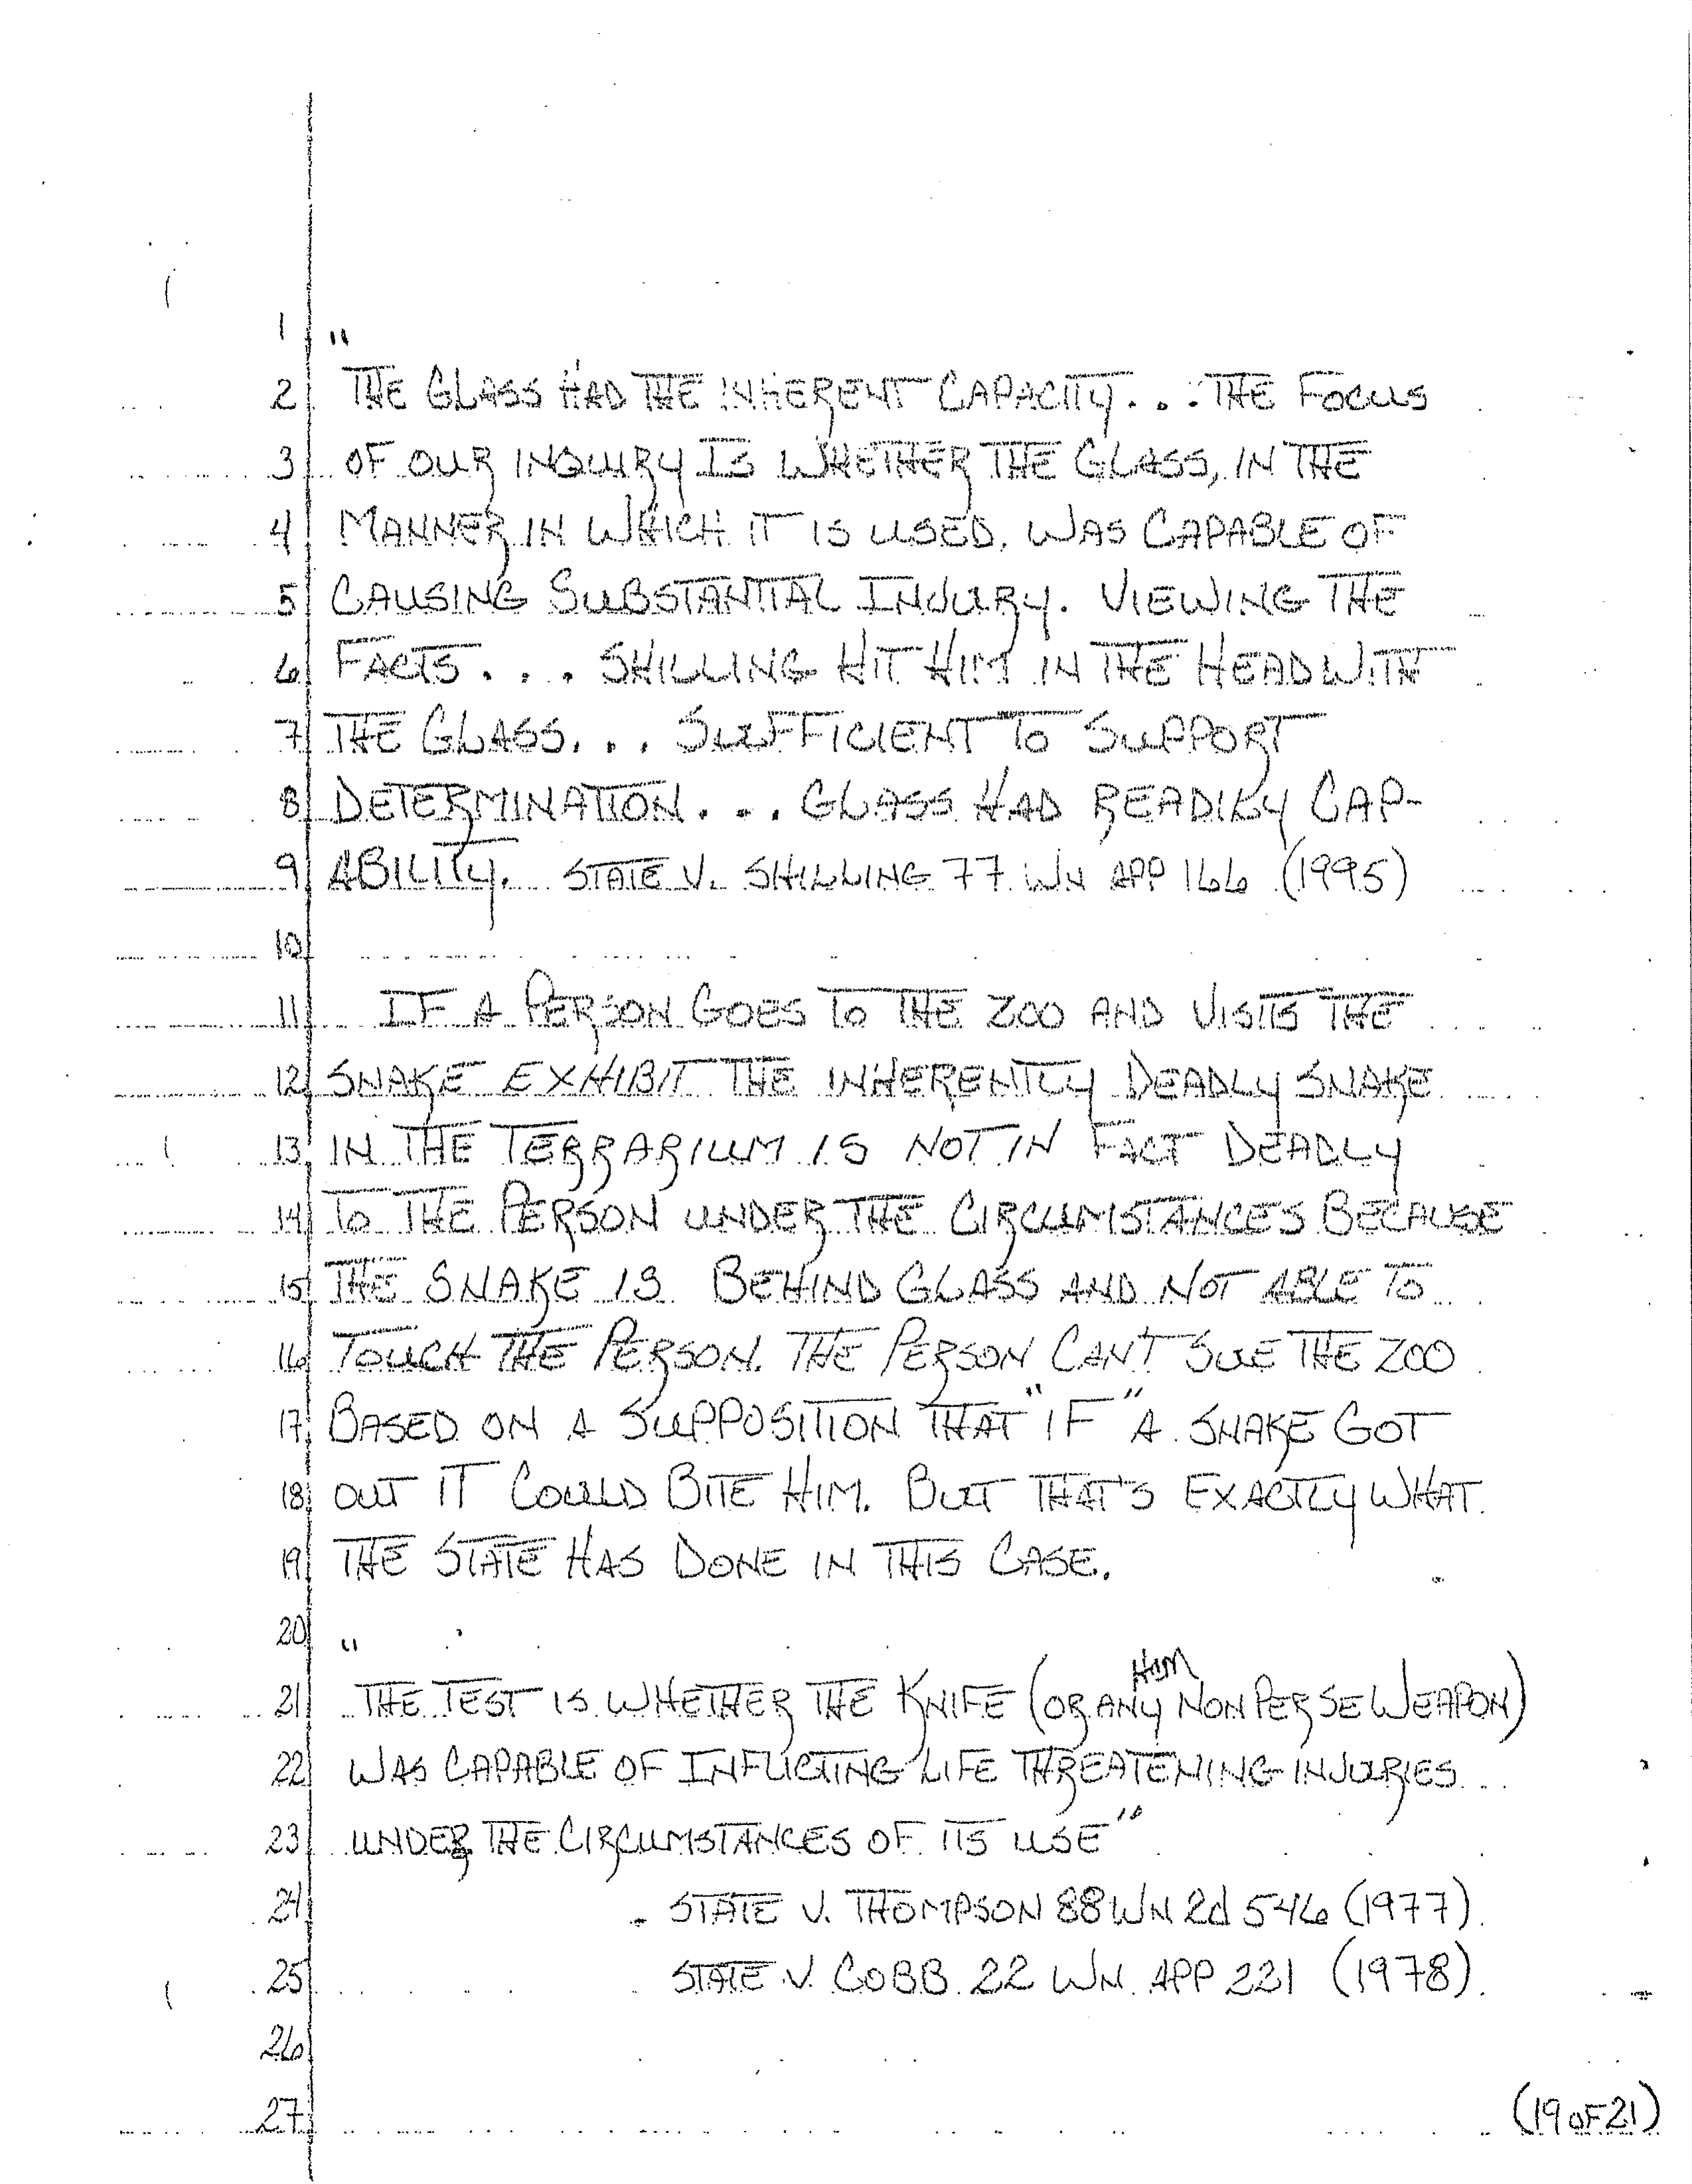 1 "
2 THE GLASS HAD THE INHERENT CAPACITY... THE FOCUS
3 OF OUR INQUIRY IS WHETHER THE GLASS, IN THE
4 MANNER IN WHICH IT IS USED, WAS CAPABLE OF
5 CAUSING SUBSTANTIAL INJURY. VIEWING THE
6 FACTS... SHILLING HIT HIM IN THE HEAD WITH
7 THE GLASS... SUFFICIENT TO SUPPORT
8 DETERMINATION... GLASS HAD READILY CAP-
9 ABILITY. STATE V. SHILLING 77 WN APP 166 (1995)
10
11 IF A PERSON GOES TO THE ZOO AND VISITS THE
12 SNAKE EXHIBIT THE INHERENTLY DEADLY SNAKE
13 IN THE TERRARIUM IS NOT IN FACT DEADLY
14 TO THE PERSON UNDER THE CIRCUMSTANCES BECAUSE
15 THE SNAKE IS BEHIND GLASS AND NOT ABLE TO
16 TOUCH THE PERSON. THE PERSON CAN'T SUE THE ZOO
17 BASED ON A SUPPOSITION THAT "IF" A SNAKE GOT
18 OUT IT COULD BITE HIM. BUT THAT'S EXACTLY WHAT
19 THE STATE HAS DONE IN THIS CASE.
20 "
21 THE TEST IS WHETHER THE KNIFE (OR ANY NON PER SE WEAPON)
22 WAS CAPABLE OF INFLICTING LIFE THREATENING INJURIES
23 UNDER THE CIRCUMSTANCES OF ITS USE"
24 STATE V. THOMPSON 88 WN 2d 546 (1977)
25 STATE V. COBB 22 WN APP 221 (1978)
26
27
(19 OF 21)